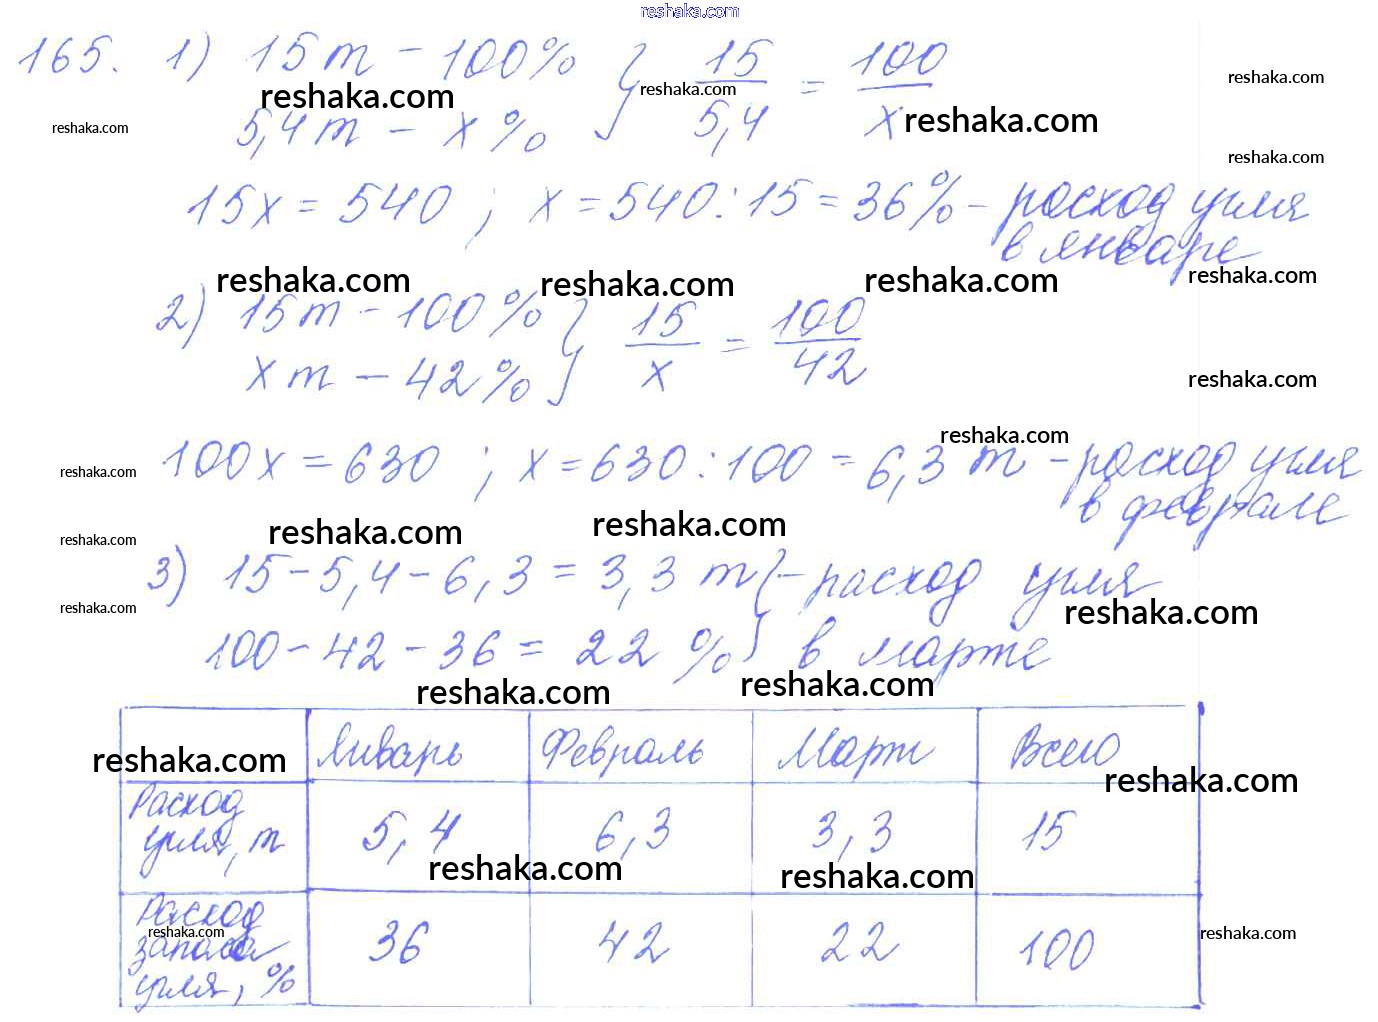 reshaka.com
165. 1) 15 т - 100% } 15/5,4 = 100/x
reshaka.com reshaka.com reshaka.com
5,4 т - x %
reshaka.com reshaka.com
reshaka.com
15x = 540 ; x = 540 : 15 = 36% - расход угля
в январе
reshaka.com reshaka.com reshaka.com reshaka.com
2) 15 т - 100% } 15/x = 100/42
x т - 42%
reshaka.com
reshaka.com
100x = 630 ; x = 630 : 100 = 6,3 т - расход угля
reshaka.com
в феврале
reshaka.com reshaka.com reshaka.com
3) 15 - 5,4 - 6,3 = 3,3 т } - расход угля
reshaka.com reshaka.com
100 - 42 - 36 = 22 % в марте
reshaka.com reshaka.com
Январь Февраль Март Всего
reshaka.com reshaka.com
Расход
угля, т 5,4 6,3 3,3 15
reshaka.com reshaka.com
Расход
reshaka.com reshaka.com
запаса 36 42 22 100
угля, %